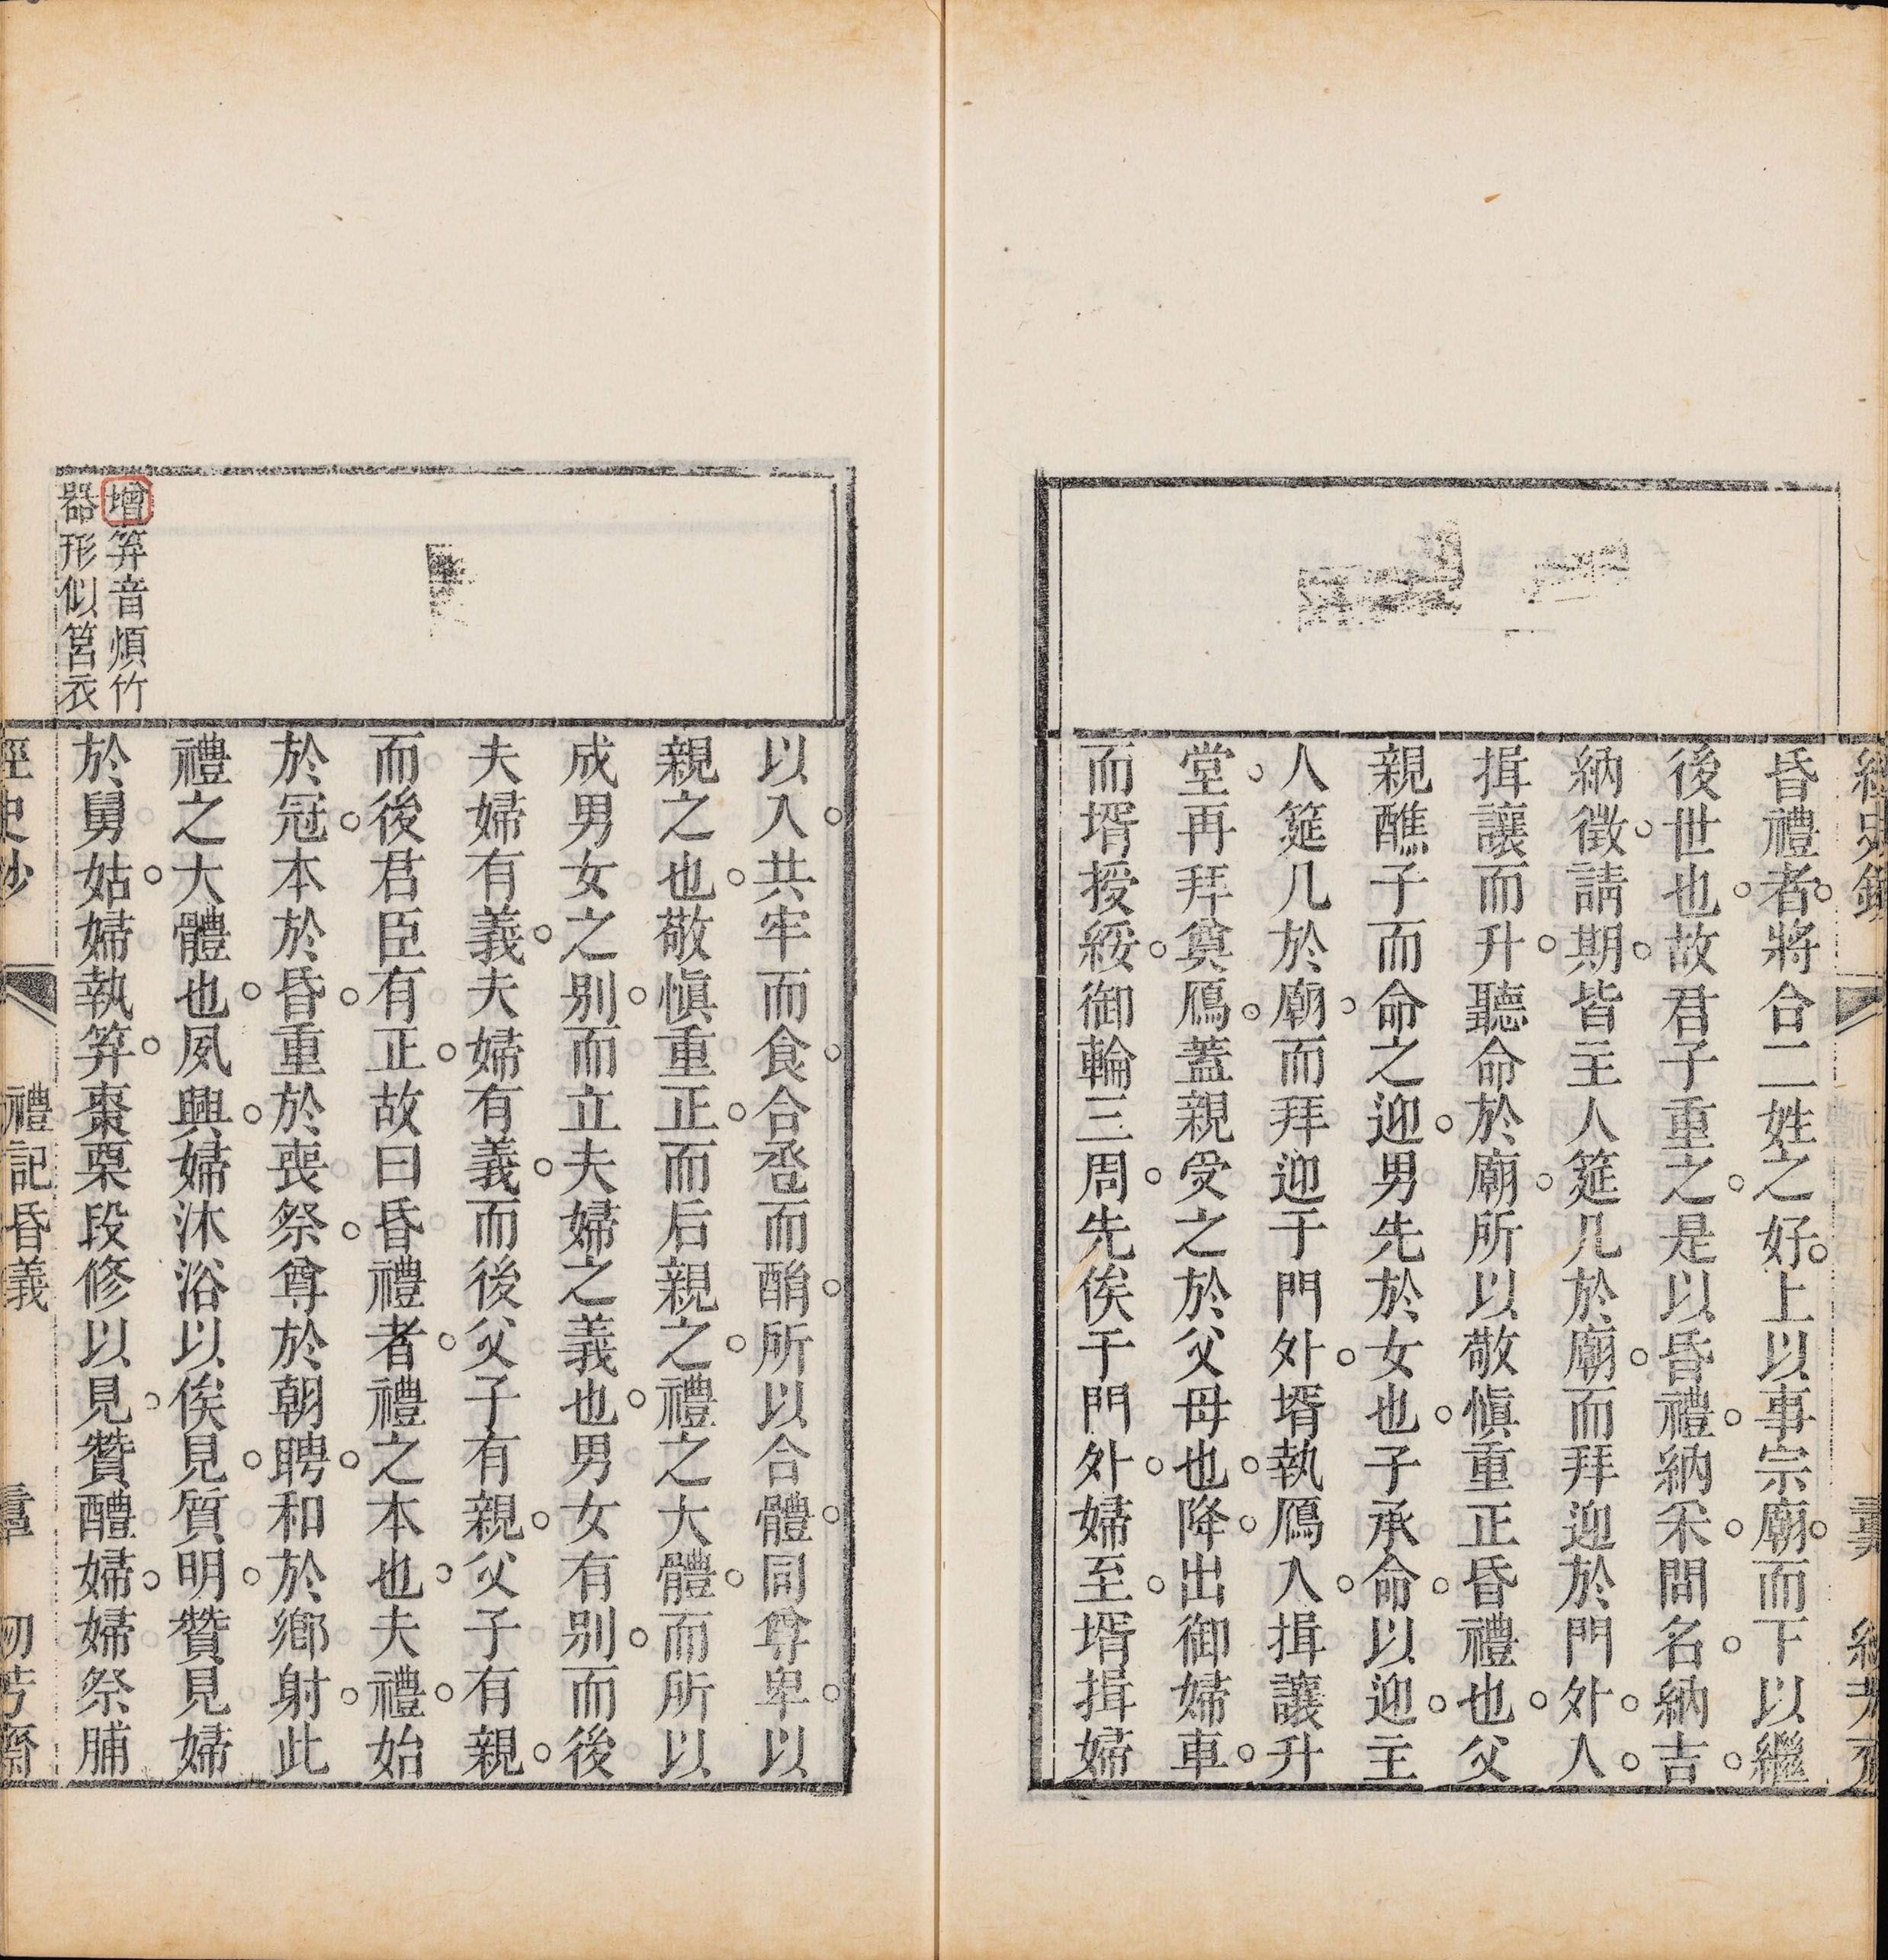 昏禮者。將合二姓之好。上以事宗廟。而下以繼
後世也。故君子重之。是以昏禮。納采。問名。納吉。
納徵。請期。皆主人筵几於廟。而拜迎於門外。人。
揖讓而升。聽命於廟。所以敬慎重正昏禮也。父
親醮子而命之迎。男先於女也。子承命。以迎。主
人筵几於廟。而拜迎于門外。壻執鴈入。揖讓升
堂。再拜奠鴈。蓋親受之於父母也。降。出御婦車。
而壻授綏。御輪三周。先俟于門外。婦至。壻揖婦
以入。共牢而食。合巹而酳。所以合體。同尊卑。以
親之也。敬慎重正。而后親之。禮之大體。而所以
成男女之別。而立夫婦之義也。男女有別。而後
夫婦有義。夫婦有義。而後父子有親。父子有親。
而後君臣有正。故曰昏禮者。禮之本也。夫禮。始
於冠。本於昏。重於喪祭。尊於朝聘。和於鄉射。此
禮之大體也。夙興。婦沐浴以俟見。質明。贊見婦
於舅姑。婦執笲。棗栗段修以見。贊醴婦。婦祭脯
增笲音煩竹
器形似筥衣
禮記昏義